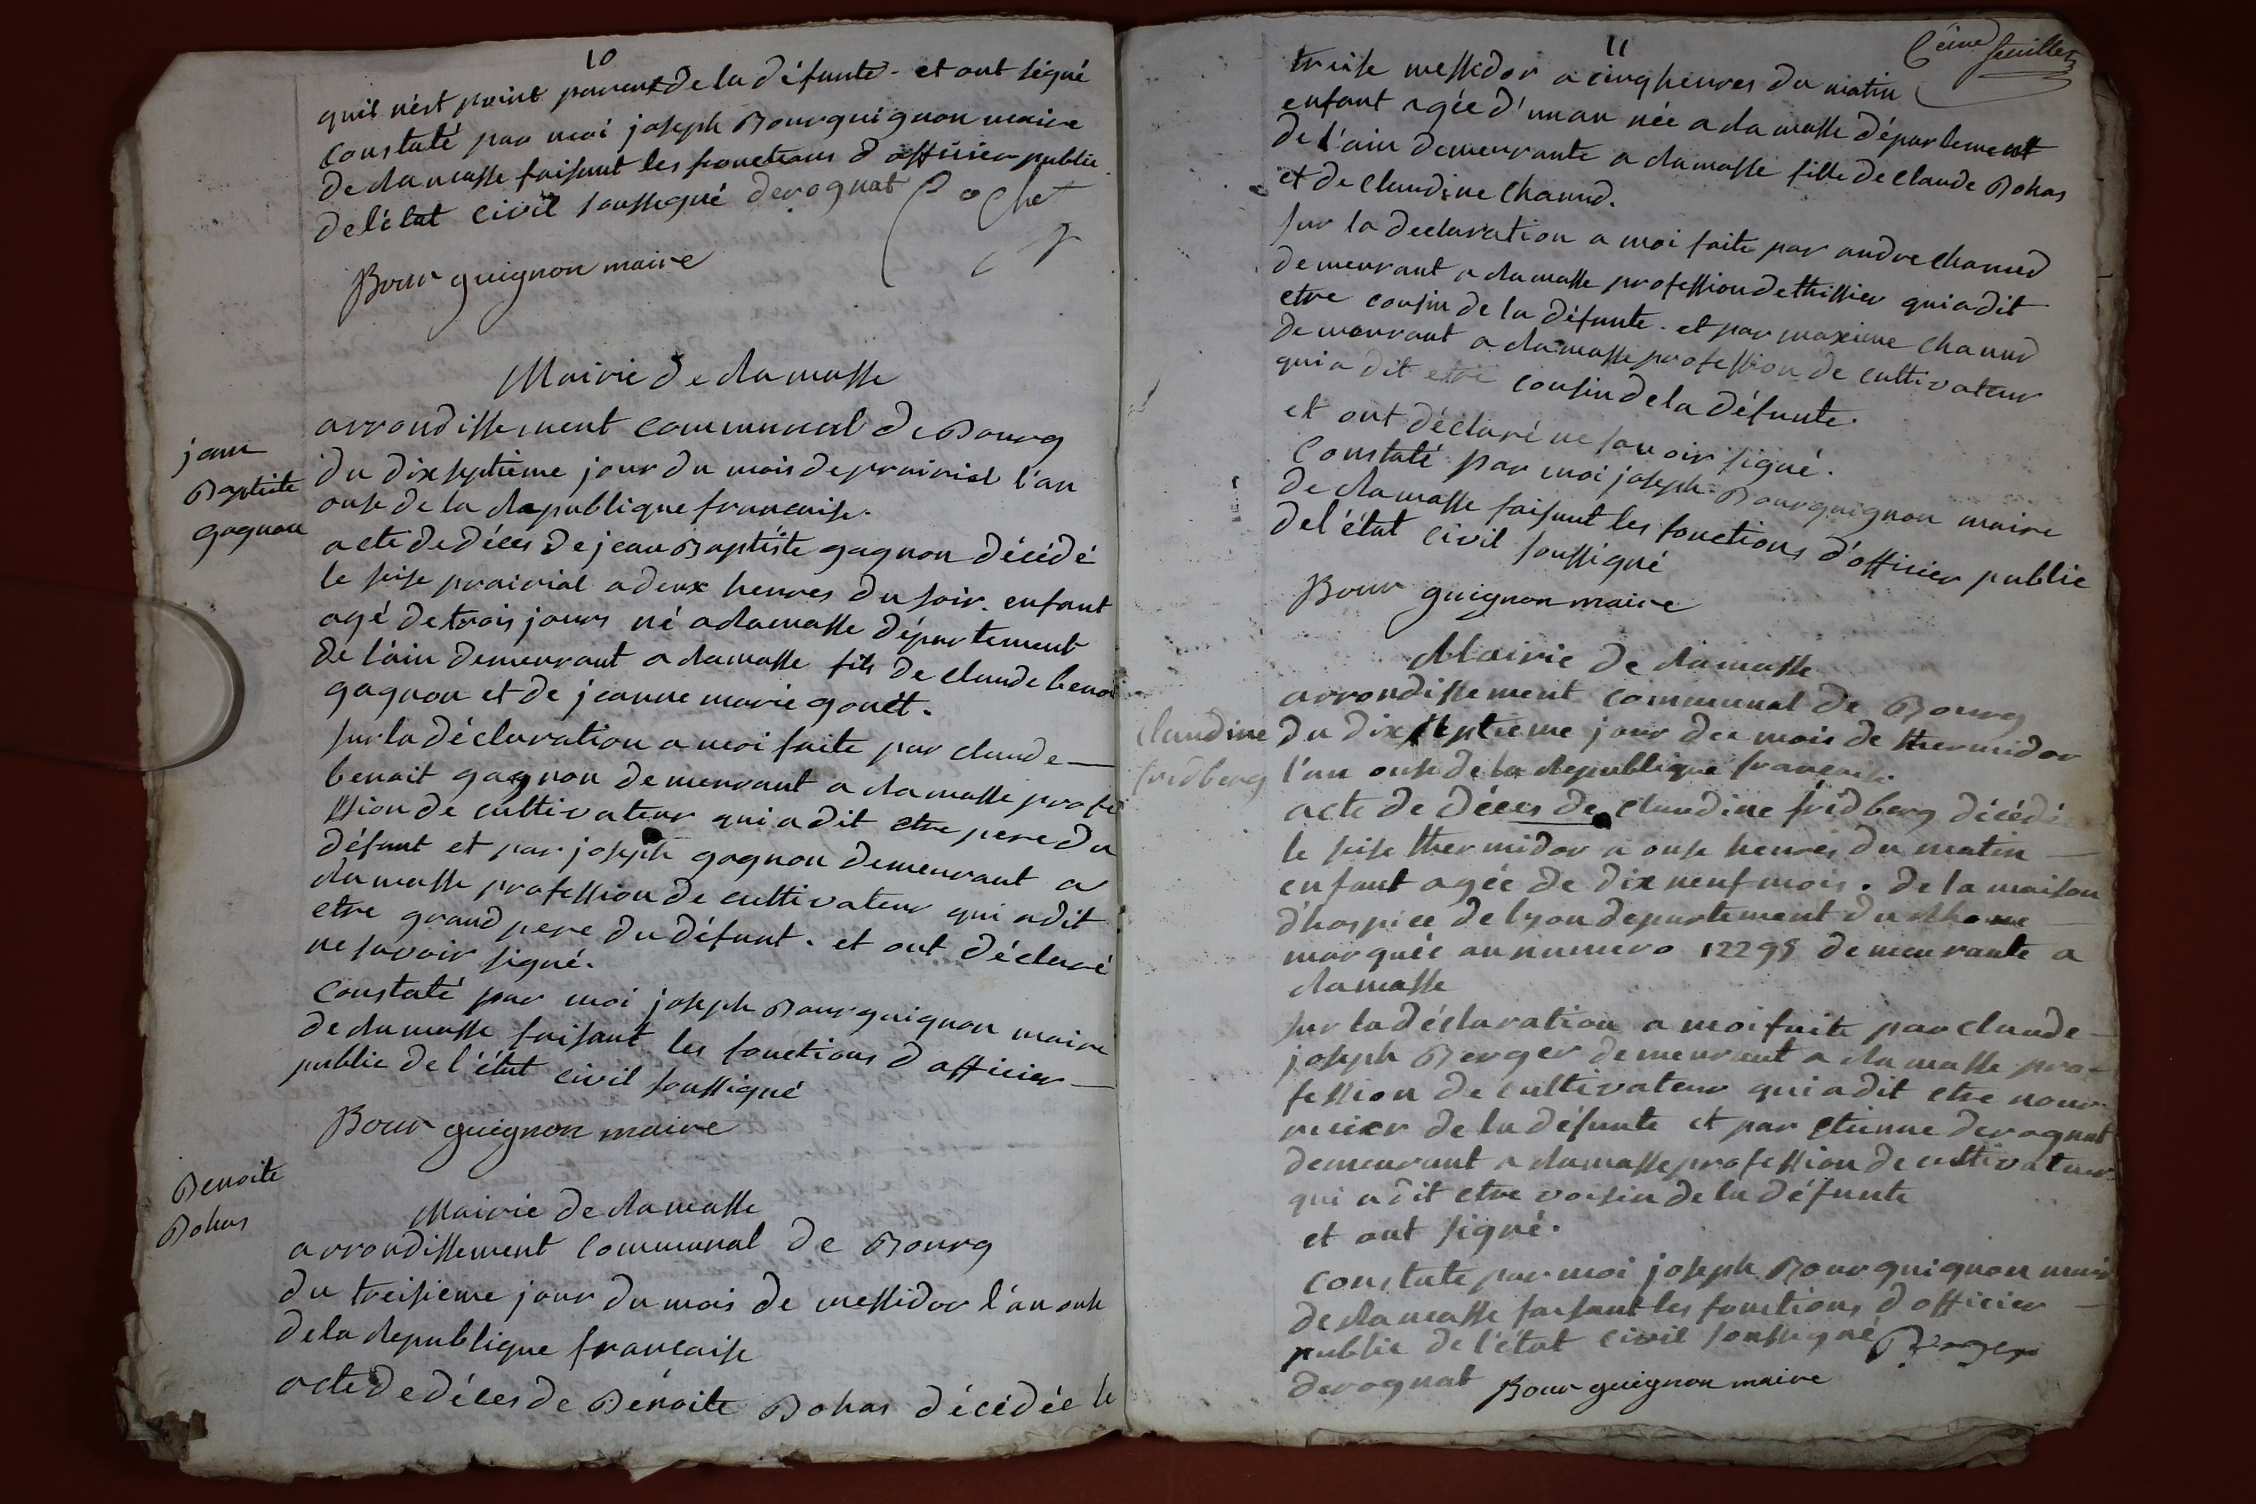 10
quil n'est point parent de la défunte. et ont signé
Constaté par moi joseph Bourguignon maire
de Ramasse faisant les fonctions d'officier public
de l'état civil soussigné derognat Pochet
Bourguignon maire
Mairie de Ramasse
arrondissement communal de Bourg
jean
Baptiste
gagnon
du dix septième jour du mois de prairial l'an
onze de la Republique francaise.
acte de décès de jean Baptiste gagnon décédé
le seise prairial a deux heures du soir. enfant
agé de trois jours né a Ramasse département
de l'ain demeurant a Ramasse fils de claude benoi
gagnon et de jeanne marie gonet.
sur la déclaration a moi faite par claude
benoit gagnon demeurant a Ramasse profe
ssion de cultivateur qui a dit etre pere du
défunt et par joseph gagnon demeurant a
Ramasse profession de cultivateur qui a dit
etre grand pere du défunt. et ont déclaré
ne savoir signé.
Constaté par moi joseph Bourguignon maire
de Ramasse faisant les fonctions d'officier
public de l'état civil soussigné
Bourguignon maire
Benoite
Bohas
Mairie de Ramasse
arrondissement Communal de Bourg
du treisieme jour du mois de messidor l'an onse
de la Republique francaise
acte de décès de Benoite Bohas décédée le
11
6eme feuillet
treise messidor a cinq heures du matin
enfant agée d'un an née a Ramasse département
de l'ain demeurante a Ramasse fille de claude Bohas
et de claudine chanud.
sur la declaration a moi faite par andre chanud
demeurant a Ramasse profession de thissier qui a dit
etre cousin de la défunte. et par maxime chanud
demeurant a Ramasse profession de cultivateur
qui a dit etre cousin de la défunte.
et ont déclaré ne savoir signé.
Constaté par moi joseph Bourguignon maire
de Ramasse faisant les fonctions d'officier public
de l'état civil soussigné
Bourguignon maire
Mairie de Ramasse
arrondissement communal de Bourg
Claudine
fridberg
du dix septieme jour du mois de thermidor
l'an onse de la Republique francaise.
acte de décès de claudine fridberg décédé
le seise thermidor a onse heures du matin
enfant agée de dix neuf mois. de la maison
d'hospice de lyon departement du Rhone
marquée au numero 12298 demeurante a
Ramasse
sur la déclaration a moi faite par claude
joseph Berger demeurant a Ramasse pro-
fession de cultivateur qui a dit etre nour
ricier de la défunte et par etienne derognat
demeurant a Ramasse profession de cultivateur
qui a dit etre voisin de la défunte
et ont signé.
Constaté par moi joseph Bourguignon mair
de Ramasse faisant les fonctions d'officier
public de l'état civil soussigné Berger
derognat Bourguignon maire